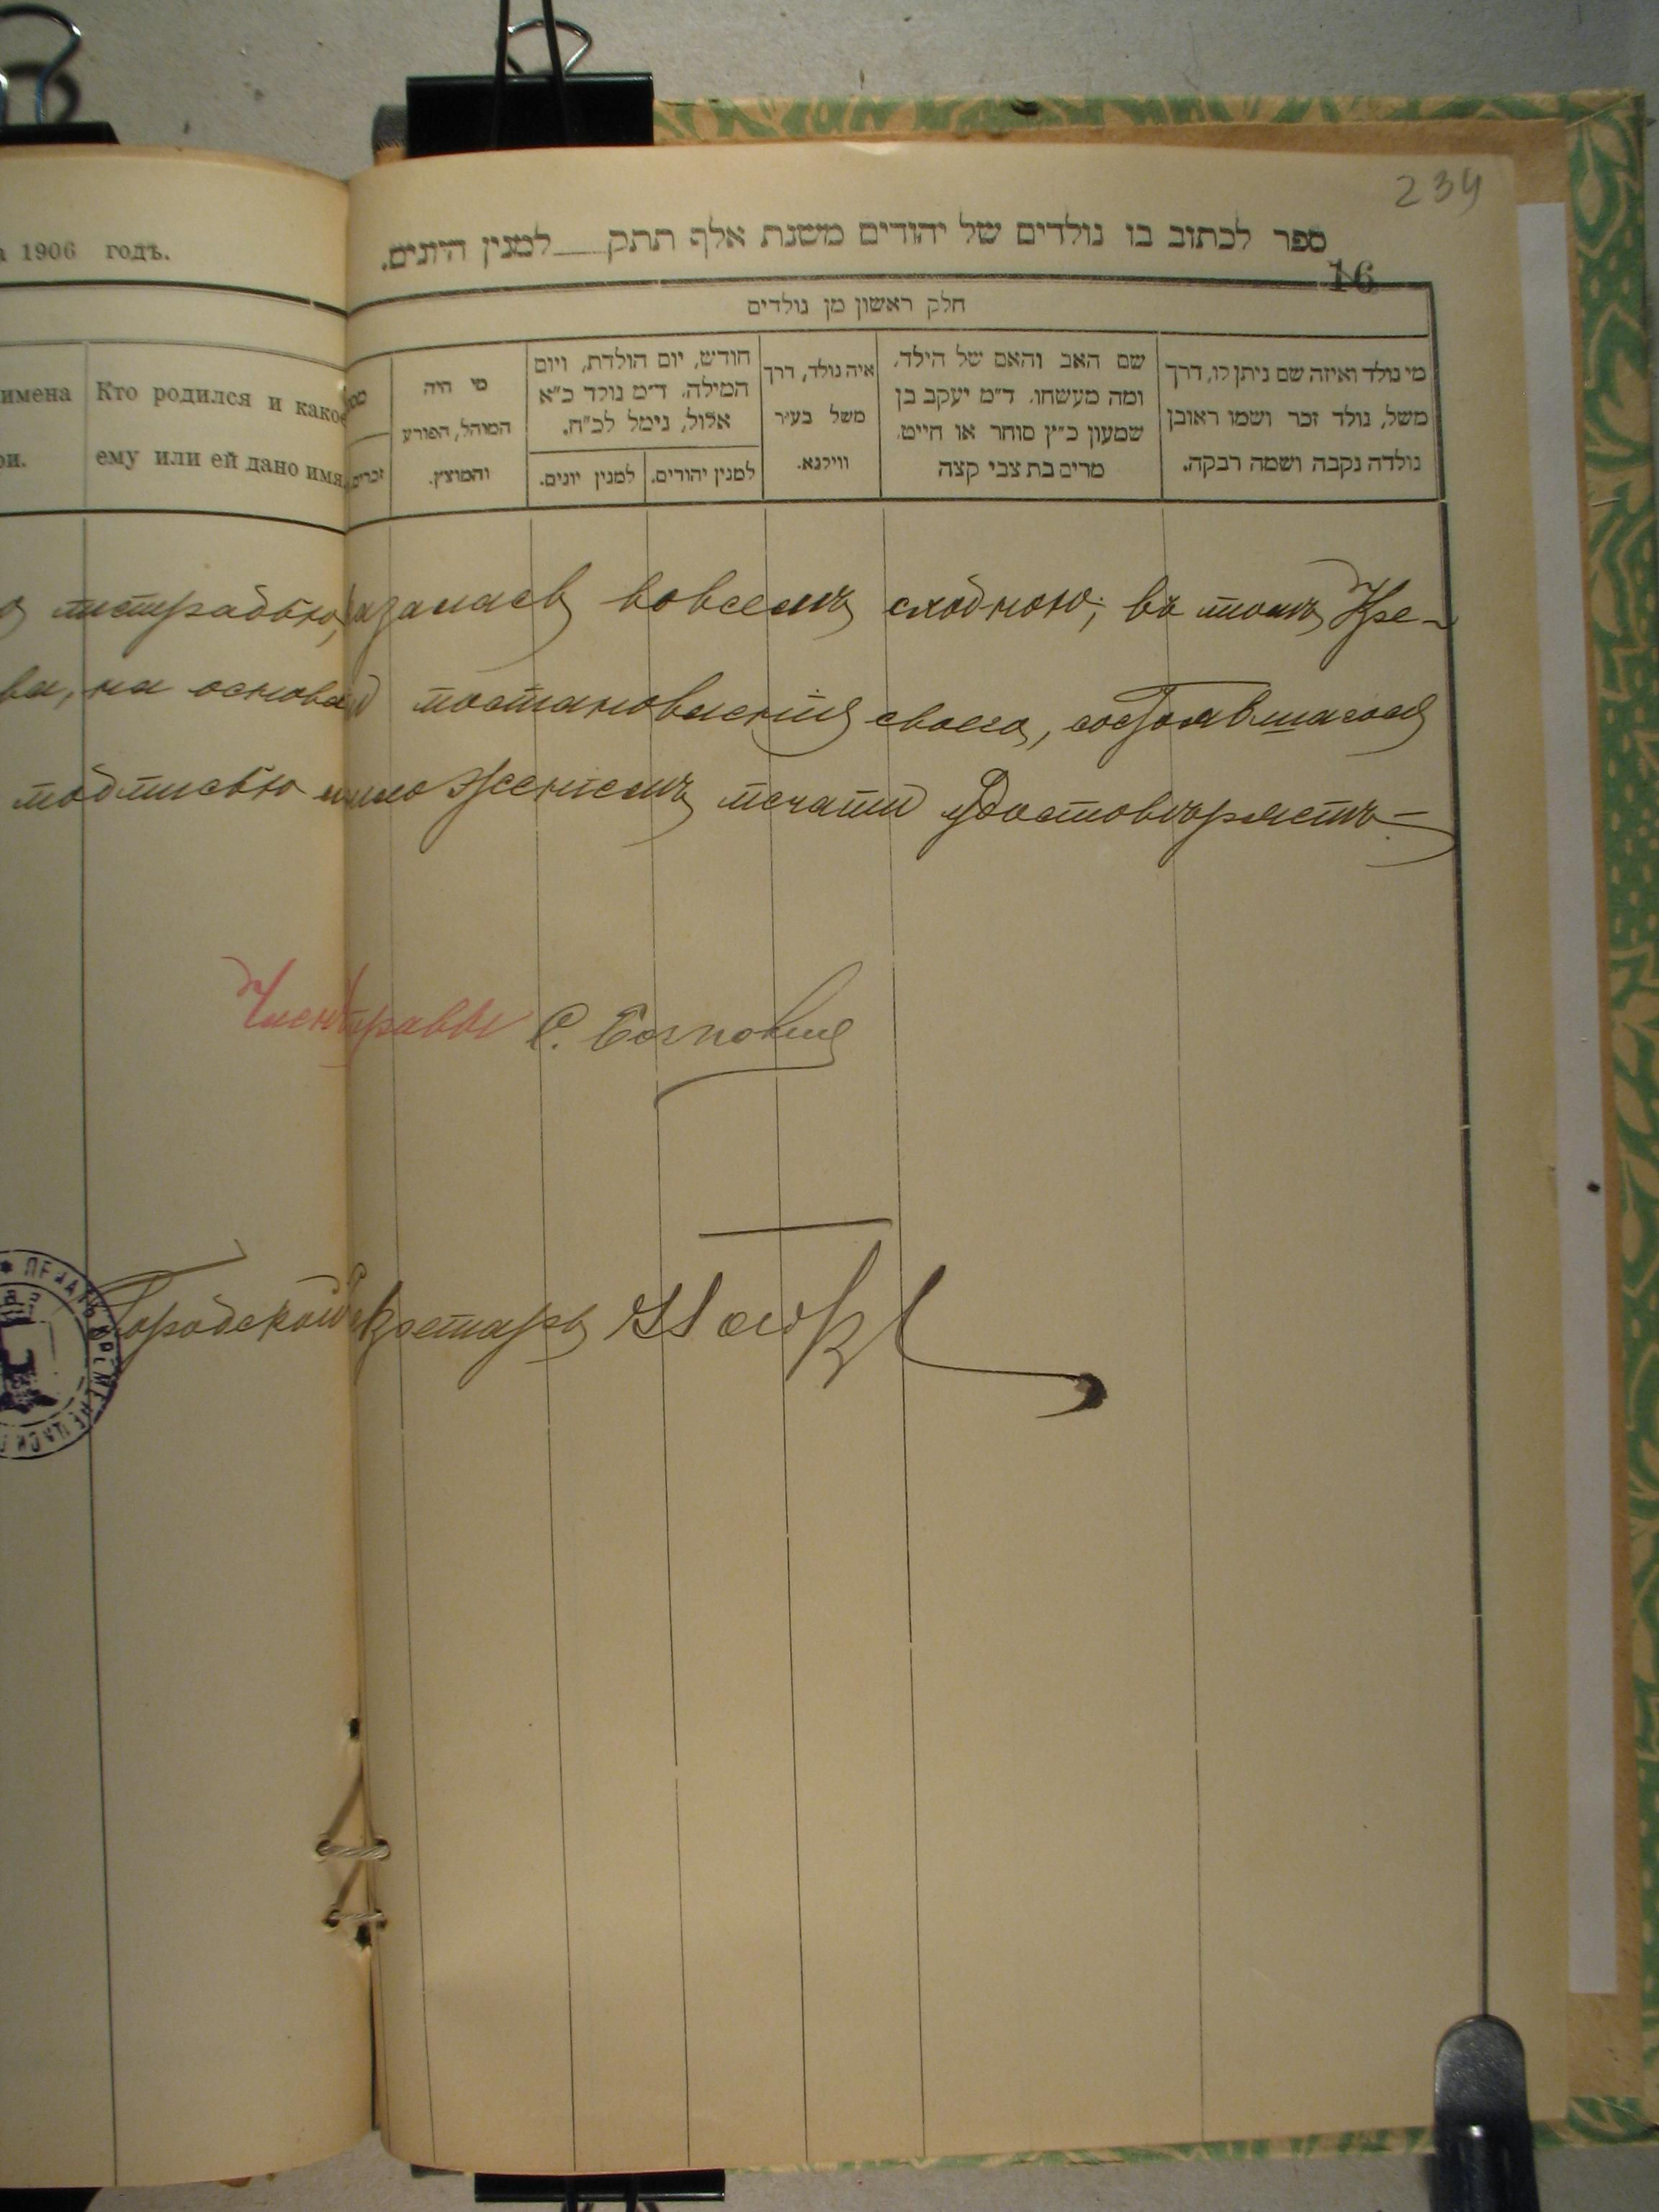 239
а 1906 годъ.
имена
ри.
Кто родился и какое
ему или ей дано имя.
ספר לכתוב בו נולדים של יהודים משנת אלף תתק למנין היונים.
16
חלק ראשון מן נולדים
מי נולד ואיזה שם ניתן לו, דרך
משל, נולד זכר ושמו ראובן
נולדה נקבה ושמה רבקה.
שם האב והאם של הילד,
ומה מעשהו. ד״מ יעקב בן
שמעון כ״ץ סוחר או חייט.
מרים בת צבי קצה
איה נולד, דרך
משל בעיר
ווילנא.
חודש, יום הולדת, ויום
המילה. ד״מ נולד כ״א
אלול, נימל לכ״ח.
למנין יהודים.
למנין יונים.
מי היה
המוהל, הפורע
והמוצץ.
זכרים
тетрадью, казалась вовсемъ сходною; въ томъ Кре-
ва, на основа постановления своего, состоявшагося
подписью приложениемъ печати удостовѣряетъ
Член Управы С.
Городской Секретарь
ПЕЧАТЬ КРЕМЕНЕЦК